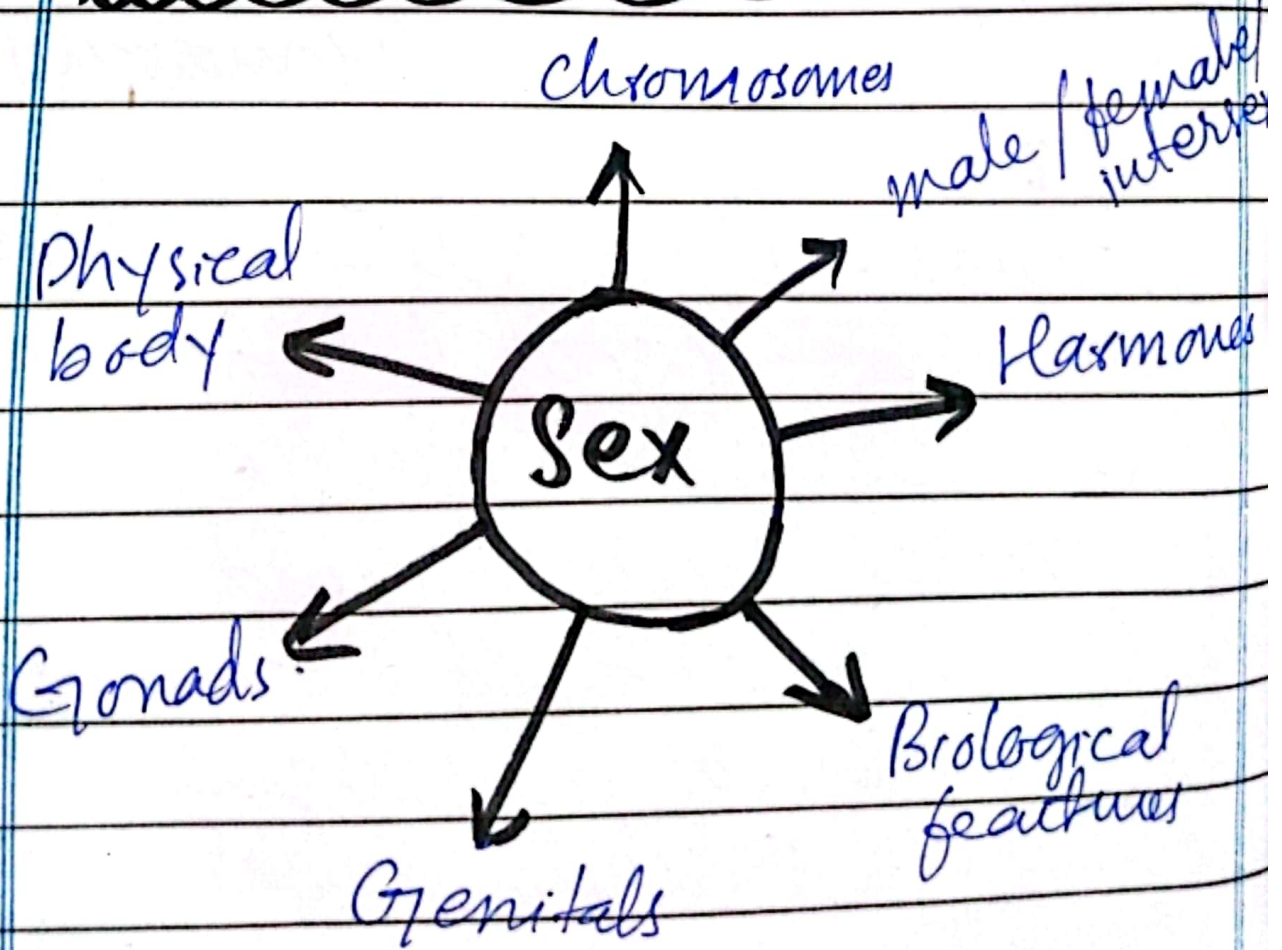 Chromosomes
male / female /
intersex
Physical
body
Harmones
Sex
Gonads
Biological
features
Genitals